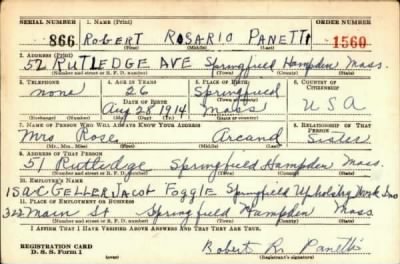 SERIAL NUMBER 1. NAME (Print) ORDER NUMBER
866 ROBERT ROSARIO PANETTI 1560
(First) (Middle) (Last)
2. ADDRESS (Print)
52 RUTLEDGE AVE Springfield Hampden Mass.
(Number and street or R. F. D. number) (Town) (County) (State)
3. TELEPHONE 4. AGE IN YEARS 5. PLACE OF BIRTH 6. COUNTRY OF CITIZENSHIP
none 26 Springfield
DATE OF BIRTH (Town or county)
Aug 28 1914 Mass U S A
(Exchange) (Number) (Mo.) (Day) (Yr.) (State or country)
7. NAME OF PERSON WHO WILL ALWAYS KNOW YOUR ADDRESS 8. RELATIONSHIP OF THAT PERSON
Mrs Rose Arcand Sister
(Mr., Mrs., Miss) (First) (Middle) (Last)
9. ADDRESS OF THAT PERSON
51 Rutledge Springfield Hampden Mass.
(Number and street or R. F. D. number) (Town) (County) (State)
10. EMPLOYER'S NAME
ISAAC GELLER JACOB FOGGIE Springfield Upholstery Work Inc
11. PLACE OF EMPLOYMENT OR BUSINESS
322 Main St Springfield Hampden Mass
(Number and street or R. F. D. number) (Town) (County) (State)
I AFFIRM THAT I HAVE VERIFIED ABOVE ANSWERS AND THAT THEY ARE TRUE.
REGISTRATION CARD
D. S. S. Form 1 Robert R. Panetti
(Registrant's signature)